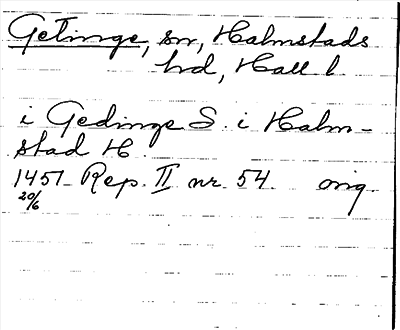 Getinge, sn, Halmstads
hd, Hall l.
i Gedinge S. i Halm-
stad H.
1451 Rep. II nr 54. orig.
20/6